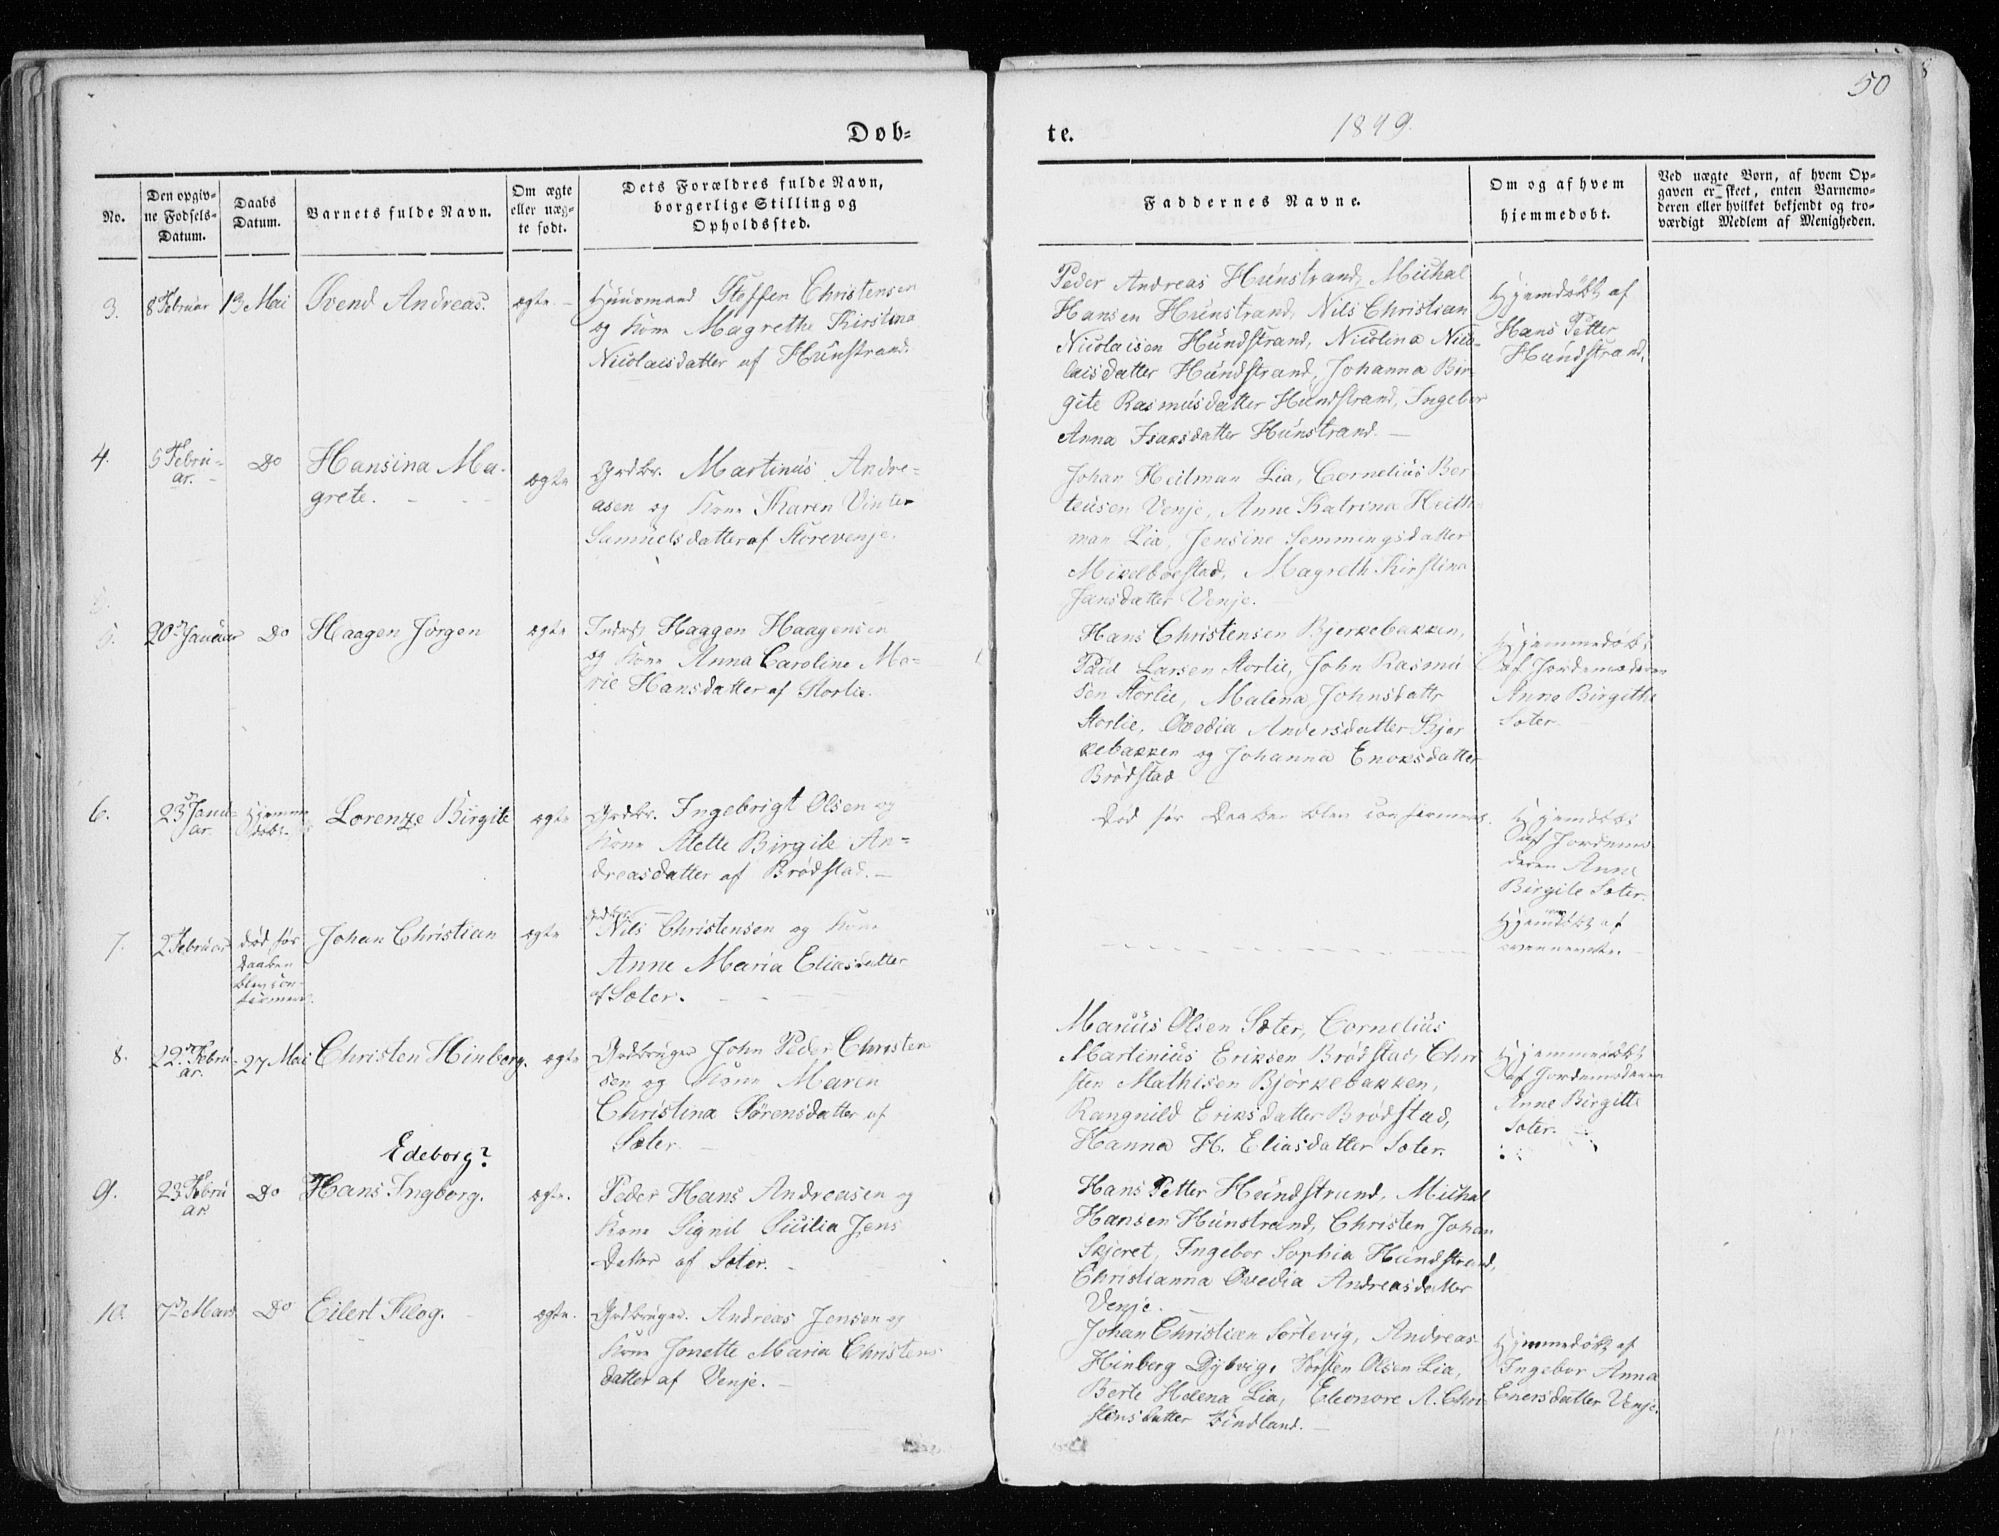 50
Døb-
te.
1849.
No.
Den opgiv-
ne Fødsels-
Datum.
Daabs
Datum.
Barnets fulde Navn.
Om ægte
eller uæg-
te født.
Dets Forældres fulde Navn,
borgerlige Stilling og
Opholdssted.
Faddernes Navne.
Om og af hvem
hjemmedøbt.
Ved uægte Børn, af hvem Op-
gaven er skeet, enten Barnemo-
deren eller hvilket bekjendt og tro-
værdigt Medlem af Menigheden.
3.
8 Februar
19 Mai
Svend Andreas.
ægte.
Huusmand Steffen Christensen
og Kone Magrethe Kirstina
Nicolaisdatter af Hünstrand.
Peder Andreas Hünstrand, Michal
Hansen Hünstrand, Nils Christian
Nicolaisen Hündstrand, Nicolina Nico-
laisdatter Hündstrand, Johanna Bir
gite Rasmusdatter Hündstrand, Ingebor
Anna Isaksdatter Hünstrand. -
Hjemdøbt af
Hans Petter
Hündstrand,
4.
5 Febru-
ar.
Do
Hansina Ma-
grete.
ægte
Grdbr. Martinus Andre-
asen og Kone Karen Vinter
Samuelsdatter af Storevenje.
Johan Heitman Lia, Cornelius Ber
teusen Venje, Anne Katrina Heith
man Lia, Jensine Semmingsdatter
Mikelboestad, Magreth Kirstina
Jansdatter Venje.
5.
20de Januar
Do
Haagen Jørgen
ægte
Inders. Haagen Haagensen
og Kone Anna Caroline Ma-
rie Hansdatter af Storlie.
Hans Christensen Bjerkebakken,
Paul Larsen Storlie, John Rasmu
sen Storlie, Malena Johnsdattr
Storlie, Ovedia Andersdatter Bjer
kebakken og Johanna Enoksdatter
Brødstad
Hjemmedøbt
af Jordemoderen
Anne Birgitte
Sæter.
6.
23 Janu-
ar.
Hjemme
døbt.
Lorenze Birgite
ægte
Grdbr. Ingebrigt Olsen og
Kone Alette Birgite An-
dreasdatter af Brødstad. -
Død før Daaben blev confirmeret.
Hjemdøbt
af Jordemo
deren Anne
Birgite Sæter.
7.
2 Februar
død før
Daaben
blev con-
firmeret.
Johan Christian
ægte
Grdbr.
Nils Christensen og Kone
Anne Maria Eliasdatter
af Sæter.
Hjemdøbt af
ovennevnte.
8.
22 Febru-
ar.
27 Mai
Christen Hinberg.
ægte
Grdbruger John Peder Christen
sen og Kone Maren
Christina Sørensdatter af
Sæter.
Marius Olsen Sæter, Cornelius
Martinius Eriksen Brødstad, Chri
sten Mathisen Bjørkebakken,
Rangnild Eriksdatter Brødstad,
Hanna H. Eliasdatter Sæter.
Hjemmedøbt
af Jordemoderen
Anne Birgitte
Sæter.
Edeborg?
9.
23 Febru
ar
Do
Hans Ingborg.
ægte.
Peder Hans Andreasen og
Kone Signil Sicilia Jens
datter af Sæter.
Hans Petter Hündstrand, Michal
Hansen Hünstrand, Christen Johan
Skjeret, Ingebor Sophia Hündstrand,
Christianna Ovedia Andreasdatter
Venje.
10.
7de Mars
Do
Eilert Klog.
ægte.
Grdbruger. Andreas Jensen og
Kone Jonette Maria Christens
datter af Venje. -
Johan Christian Sortevig, Andreas
Hinberg Dybvig, Torsten Olsen Lia,
Berte Helena Lia, Eleonore A. Chri
stensdatter Findland. -
Hjemmedøbt af
Ingebor Anna
Enersdatter Venje.